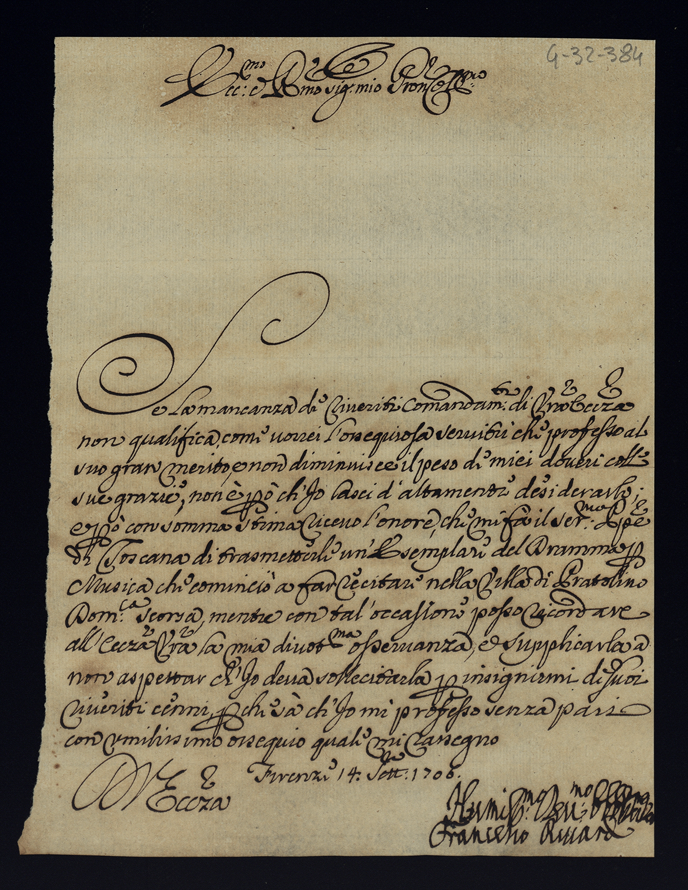 G-32-384
Ecc.mo e R.mo Sig.r mio Pron Coll.mo
Se la mancanza di riveriti Comandam.ti di Vrã Eccza
non qualifica, come vorrei l'ossequiosa servitù che professo al
suo gran merito, e non diminuisce il peso di miei doveri colle
sue grazie, non è pò ch'Io lasci d'altamente desiderarle;
e pò con somma stima ricevo l'onore, che mi fà il Ser.mo Pñpe
di Toscana di trasmetterle un'Esemplare del Dramma p
Musica che cominciò a far recitare nella Villa di Pratolino
Dom.ca scorsa, mentre con tal'occasione posso ricordare
all'Eccza Vrã la mia divot.ma osservanza, e supplicarla a
non aspettar ch'Io deva sollecitarla p insignirmi di suoi
riveriti cenni, p che sà ch'Io mi professo senza pari
con umilissimo ossequio quale mi rassegno
D V Eccza
Firenze 14. Sett.re 1706.
Humiss.mo Dev.mo
Francesco Riccardi